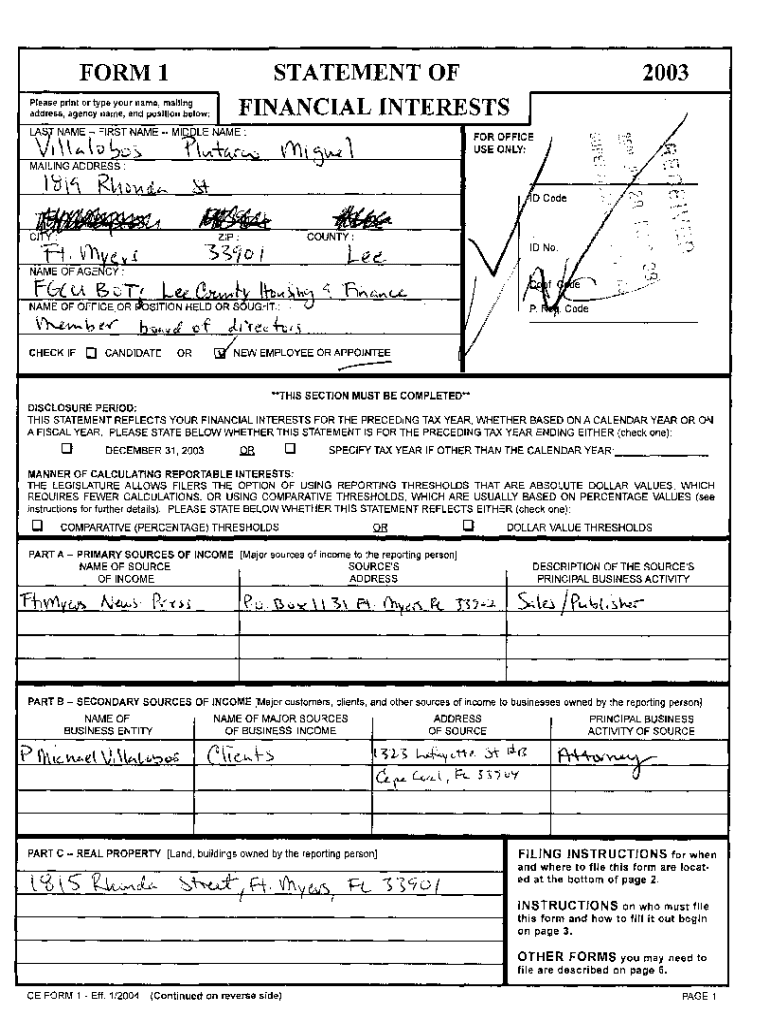 FORM 1 STATEMENT OF 2003
FINANCIAL INTERESTS
Please print or type your name, mailing
address, agency name, and position below:
LAST NAME -- FIRST NAME -- MIDDLE NAME :
Villalobos Plutarco Miguel
FOR OFFICE
USE ONLY:
MAILING ADDRESS :
1819 Rhonda St
ID Code
CITY : ZIP : COUNTY :
Ft. Myers 33901 Lee
ID No.
NAME OF AGENCY :
FGCU BOT; Lee County Housing & Finance
Conf. Code
NAME OF OFFICE OR POSITION HELD OR SOUGHT :
P. Req. Code
member board of directors
CHECK IF ☐ CANDIDATE OR ☑ NEW EMPLOYEE OR APPOINTEE
**THIS SECTION MUST BE COMPLETED**
DISCLOSURE PERIOD:
THIS STATEMENT REFLECTS YOUR FINANCIAL INTERESTS FOR THE PRECEDING TAX YEAR, WHETHER BASED ON A CALENDAR YEAR OR ON
A FISCAL YEAR. PLEASE STATE BELOW WHETHER THIS STATEMENT IS FOR THE PRECEDING TAX YEAR ENDING EITHER (check one):
☐ DECEMBER 31, 2003 OR ☐ SPECIFY TAX YEAR IF OTHER THAN THE CALENDAR YEAR:
MANNER OF CALCULATING REPORTABLE INTERESTS:
THE LEGISLATURE ALLOWS FILERS THE OPTION OF USING REPORTING THRESHOLDS THAT ARE ABSOLUTE DOLLAR VALUES, WHICH
REQUIRES FEWER CALCULATIONS, OR USING COMPARATIVE THRESHOLDS, WHICH ARE USUALLY BASED ON PERCENTAGE VALUES (see
instructions for further details). PLEASE STATE BELOW WHETHER THIS STATEMENT REFLECTS EITHER (check one):
☐ COMPARATIVE (PERCENTAGE) THRESHOLDS OR ☐ DOLLAR VALUE THRESHOLDS
PART A -- PRIMARY SOURCES OF INCOME [Major sources of income to the reporting person]
NAME OF SOURCE SOURCE'S DESCRIPTION OF THE SOURCE'S
OF INCOME ADDRESS PRINCIPAL BUSINESS ACTIVITY
Ft Myers News Press P.O. Box 1131 Ft. Myers FL 33902 Sales/Publisher
PART B -- SECONDARY SOURCES OF INCOME [Major customers, clients, and other sources of income to businesses owned by the reporting person]
NAME OF NAME OF MAJOR SOURCES ADDRESS PRINCIPAL BUSINESS
BUSINESS ENTITY OF BUSINESS INCOME OF SOURCE ACTIVITY OF SOURCE
P Michael Villalobos Clients 1323 Lafayette St Attorney
Cape Coral, FL 33904
PART C -- REAL PROPERTY [Land, buildings owned by the reporting person]
1815 Rhonda Street, Ft. Myers, FL 33901
FILING INSTRUCTIONS for when
and where to file this form are locat-
ed at the bottom of page 2.
INSTRUCTIONS on who must file
this form and how to fill it out begin
on page 3.
OTHER FORMS you may need to
file are described on page 6.
CE FORM 1 - Eff. 1/2004 (Continued on reverse side) PAGE 1